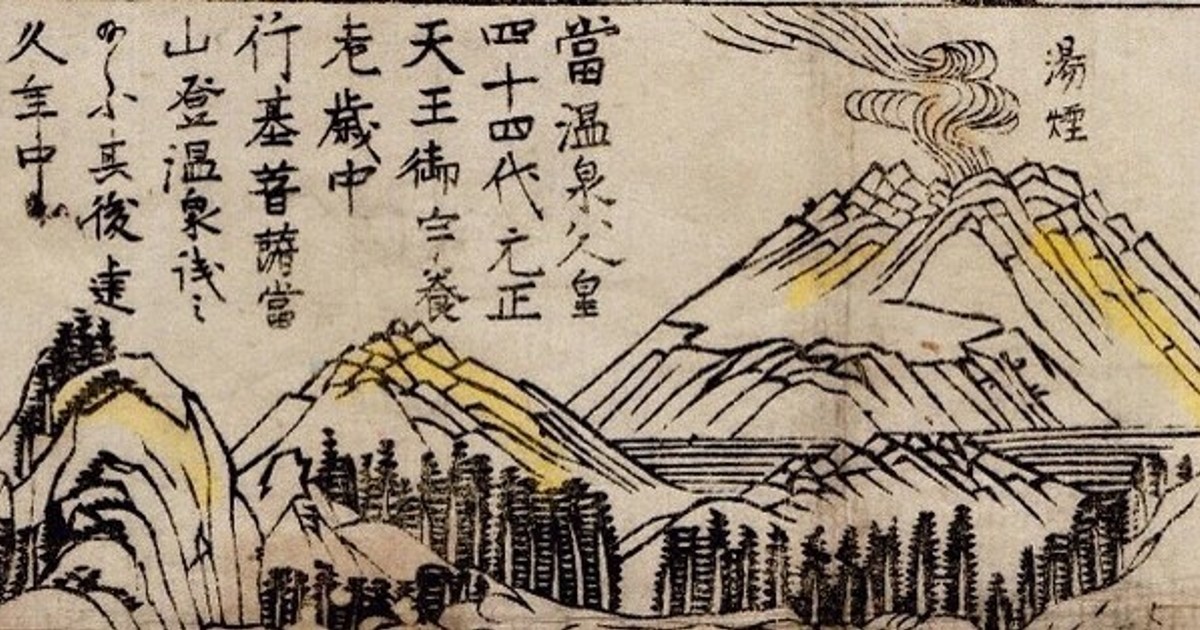 湯煙
當温泉人皇
四十四代元正
天王御宇養
老歳中
行基菩薩當
山登温泉
其後建
久年中